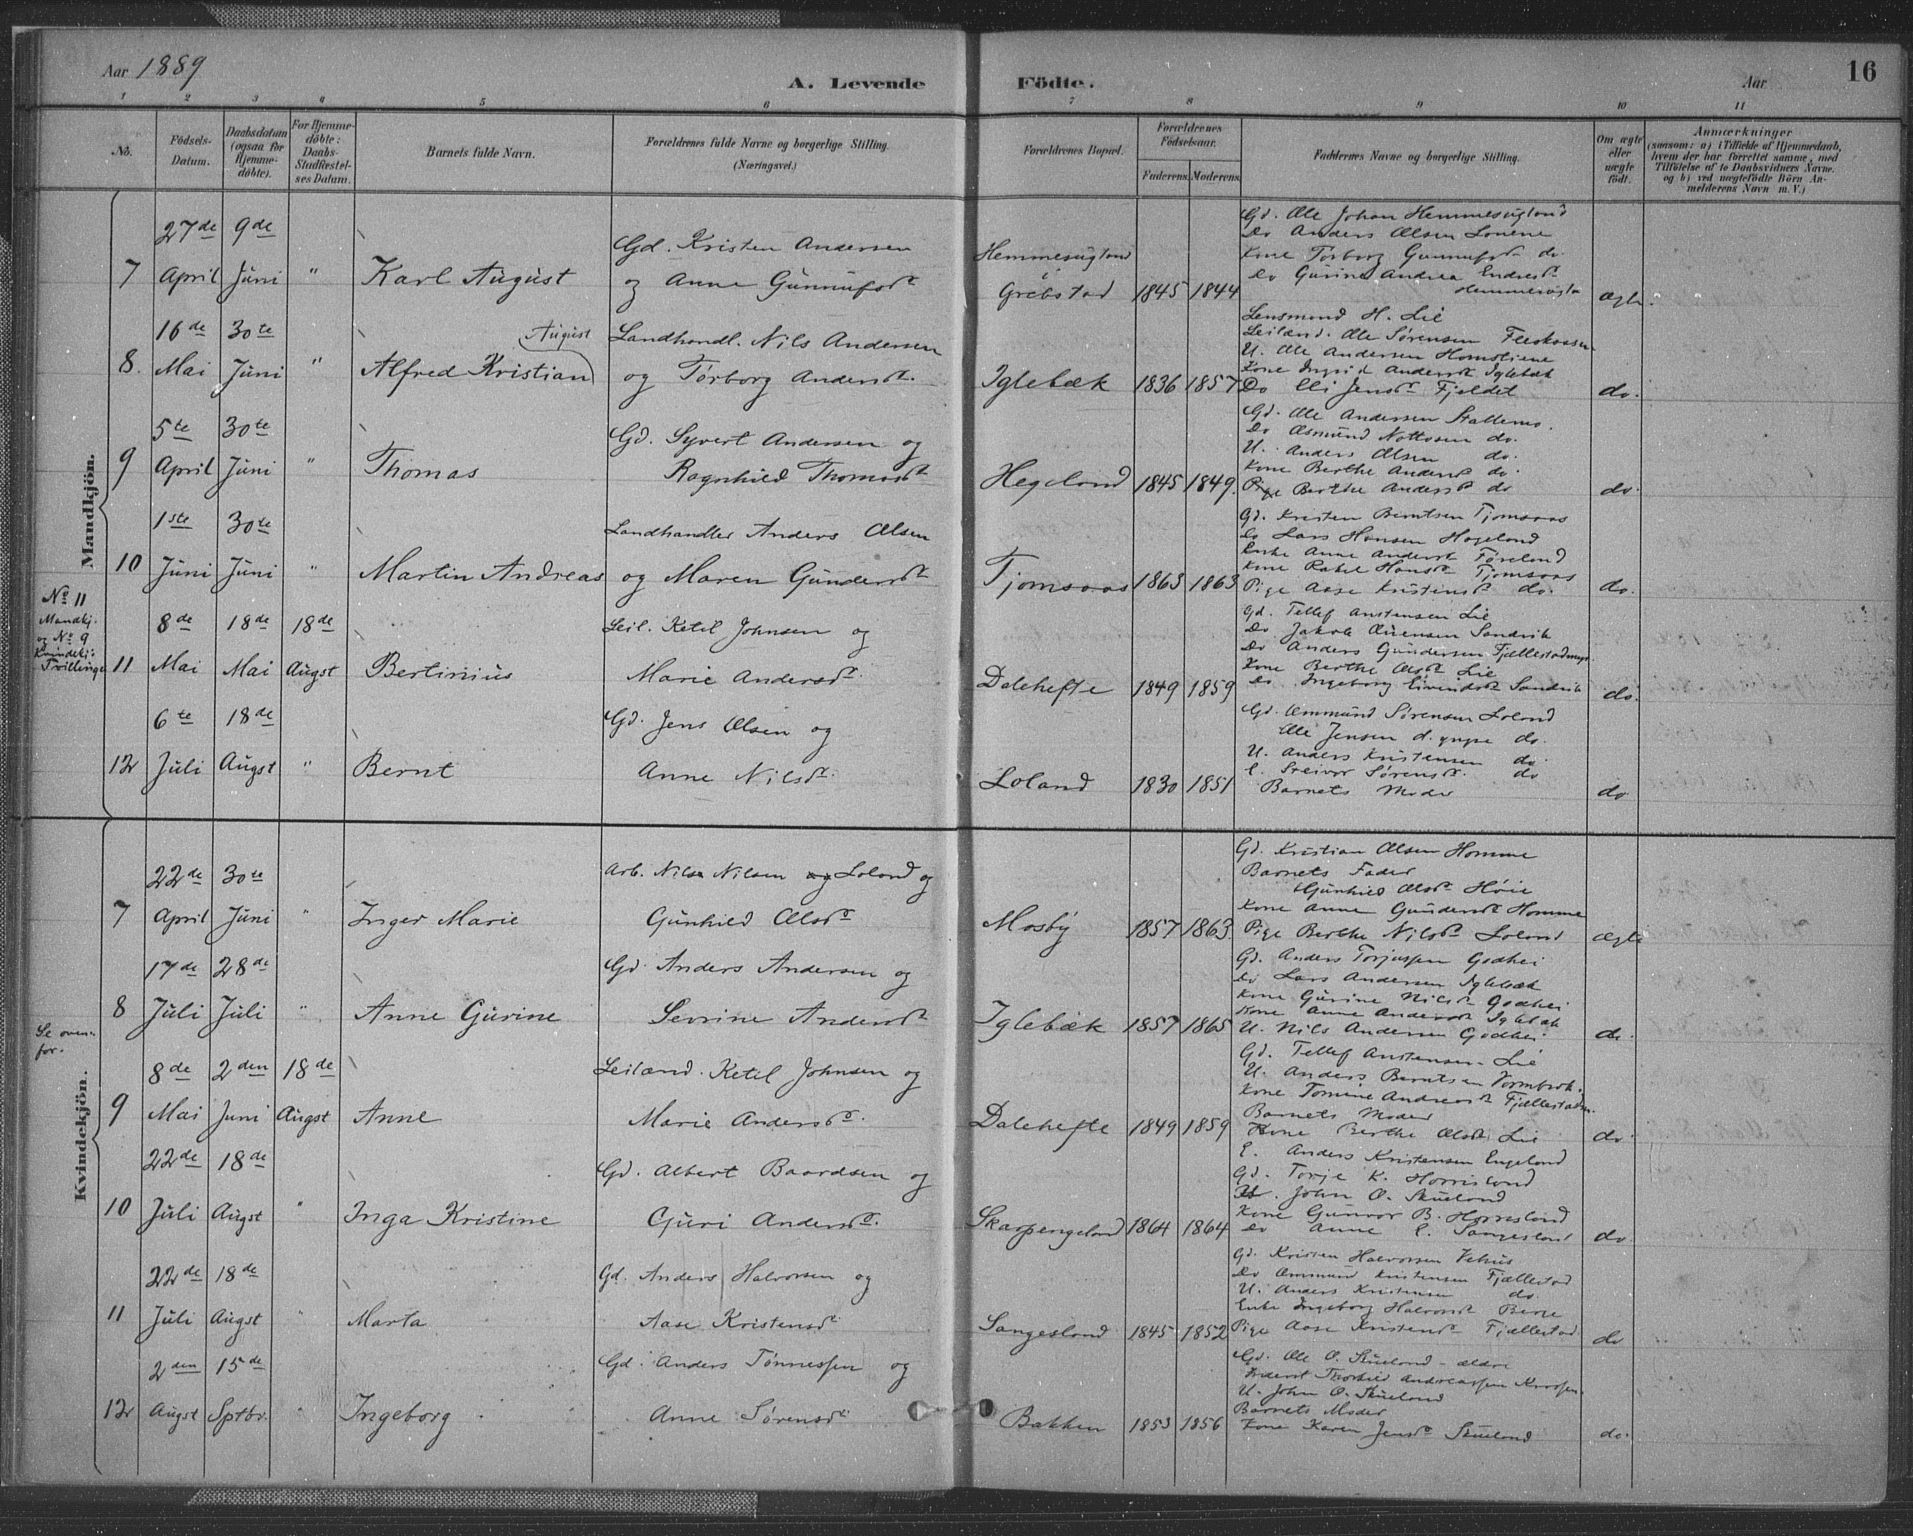 Aar 1889
A. Levende Födte.
Aar
16
1 2 3 4 5 6 7 8 9 10 11
No.
Födsels-Datum.
Daabsdatum (ogsaa for Hjemme-døbte).
For Hjemme-døbte: Daabs-Stadfæstelses Datum.
Barnets fulde Navn.
Forældrenes fulde Navne og borgerlige Stilling. (Næringsvei.)
Forældrenes Bopæl.
Forældrenes Födselsaar.
Faderens. Moderens.
Faddernes Navne og borgerlige Stilling.
Om ægte eller uægte födt.
Anmærkninger
(saasom: a) i Tilfælde af Hjemmedaab, hvem der har forrettet samme, med Tilföielse af to Daabsvidners Navne. og b) ved uægtefödte Börn Anmelderens Navn m. V.)
Mandkjön.
7 27de April 9de Juni " Karl August
Gd. Kristen Andersen
og Anne Gunnufsdt
Hemmesugland i Grebstad 1845 1844
Gd. Ole Johan Hemmesugland
Do Anders Olsen Lonene
Kone Torborg Gunnufsdt do
Do Gurine Andrea Endresdt
Hemmesugla
ægte.
8. 16de Mai 30te Juni " Alfred Kristian August
Landhandl. Nils Andersen
og Torborg Andersdt.
Iglebæk 1836 1857
Lensmand H. Lie
Leilænd. Ole Sørensen
U. Ole Andersen Homstiene
Kone Ingrid Andersdt Iglebæk
Do Eli Jensdt Fjeldet
do.
9 5te April 30te Juni " Thomas
Gd. Syvert Andersen og
Ragnhild Thomasdt
Hegeland 1845 1849.
Gd. Ole Andersen Stallemo.
Do Osmund Nottosen do.
U. Anders Olsen do.
Kone Berthe Andersdt do.
Pige Berthe Andersdt do
do.
10 1ste Juni 30te Juni " Martin Andreas
Landhandler Anders Olsen
og Maren Gundersdt
Tjomsaas 1863 1863
Gd. Kristen Berntsen Tjomsaas
Do Lars Hansen Hageland
Enke Anne Andersdt Føreland
Kone Rakel Hansdt Tjomsaas
Pige Aase Kristensdt do.
do.
No 11
Mandkj.
og No 9
Kvindekj.
Tvillinge
11 8de Mai 18de Mai 18de Augst Bertinius
Leil. Ketil Johnsen og
Marie Andersdt.
Dalehefte 1849 1859
Gd. Tellef Anstensen Lie
Do Jakob Evensen Sandvik
Do Anders Gundersen Fjellestadmyr.
Kone Berthe Olsdt Lie
Do Ingeborg Eivindsdt Sandvik
do.
12 6te Juli 18de Augst " Bernt
Gd. Jens Olsen og
Anne Nilsdt.
Loland 1830 1851
Gd. Ommund Sørensen Loland
Ole Jensen d. yngre do.
U. Anders Kristensen do.
E. Sreivor Sørensdt. do
Barnets Moder
do
Kvindekjön.
7 22de April 30te Juni " Inger Marie
Arb. Nils Nilsen Loland og
Gunhild Olsdt
Mosby 1857 1863.
Gd. Kristian Olsen Homme
Barnets Fader
Gunhild Olsdt Høie
Kone Anne Gundersdt Homme
Pige Berthe Nilsdt Loland
ægte
8 17de Juli 28de Juli " Anne Gurine
Gd. Anders Andersen og
Sevrine Andersdt
Iglebæk 1857 1865
Gd. Anders Torjussen Godhei
Do Lars Andersen Iglebæk
Kone Gurine Nilsdt Godhei
Kone Anne Andersdt Iglebæk
U. Nils Andersen Godhei
do
Se oven-
for.
9 8de Mai 2den Juni 18de Augst Anne
Leilænd. Ketil Johnsen og
Marie Andersdt.
Dalehefte 1849 1859
Gd. Tellef Anstensen Lie
U. Anders Berntsen Vormbrok.
Kone Tomine Andreasdt Fjellestadm.
Barnets Moder
Kone Berthe Olsdt Lie
do.
10 22de Juli 18de Augst " Inga Kristine
Gd. Albert Baardsen og
Guri Andersdt.
Skarpengeland 1864 1864
E. Anders Kristensen Engeland
Gd. Torje K. Horrisland
U. John O. Skueland
Kone Gunvor B. Horresland
Do Anne E. Sangesland
do.
11 22de Juli 18de Augst " Marta
Gd. Anders Halvorsen og
Aase Kristensdt
Sangesland 1845 1852
Gd. Kristen Halvorsen Vehus
Do Ommund Kristensen Fjellestad
U. Anders Kristensen do.
Enke Ingeborg Halvorsdt Berge
Pige Aase Kristensdt Fjellestad
do
12 2den Augst 15de Sptbr. " Ingeborg
Gd. Anders Tønnessen og
Anne Sørensdt
Bakken 1853 1856
Gd. Ole O. Skueland - ældre
U. John O. Skueland
Barnets Moder
Kone Karen Jensdt Skueland
do.